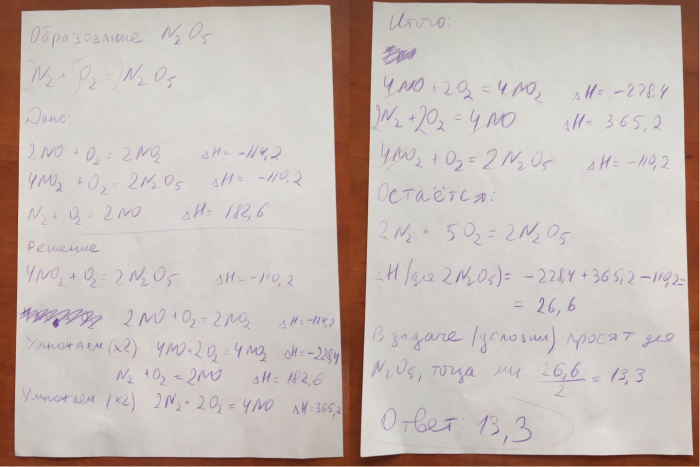 Образование N₂O₅
2N₂ + 5O₂ = 2N₂O₅
Дано:
2NO + O₂ = 2NO₂ ΔH = -114,2
4NO₂ + O₂ = 2N₂O₅ ΔH = -110,2
N₂ + O₂ = 2NO ΔH = 182,6
Решение:
4NO₂ + O₂ = 2N₂O₅ ΔH = -110,2
2NO + O₂ = 2NO₂ ΔH = -114,2
Умножаем (×2) 4NO + 2O₂ = 4NO₂ ΔH = -228,4
N₂ + O₂ = 2NO ΔH = 182,6
Умножаем (×2) 2N₂ + 2O₂ = 4NO ΔH = 365,2
Итого:
4NO + 2O₂ = 4NO₂ ΔH = -228,4
2N₂ + 2O₂ = 4NO ΔH = 365,2
4NO₂ + O₂ = 2N₂O₅ ΔH = -110,2
Остаётся:
2N₂ + 5O₂ = 2N₂O₅
ΔH (для 2N₂O₅) = -228,4 + 365,2 - 110,2 =
= 26,6
В задаче (условии) просят для
N₂O₅, тогда 26,6/2 = 13,3
Ответ: 13,3